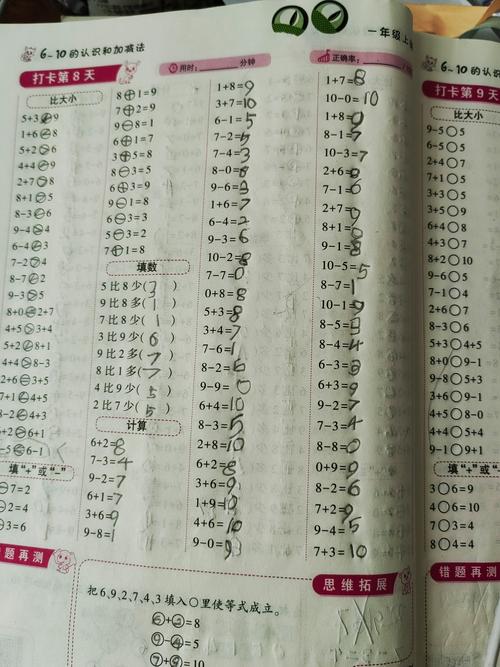 6~10的认识和加减法
一年级上
打卡第8天
用时: 分钟
正确率:
比大小
5+3 9
1+6 8
5+2 6
4+4 9
2+7 8
8+1 5
8-3 6
9-4 4
6-4 3
7-2 4
8-7 2
9-3 5
8+0 2+7
4+5 3+4
5+2 8+1
4+4 8-3
2+6 3+5
7+1 4+5
8-2 4+3
5+2 6+1
6-1
填“+”或“-”
7=2
2=4
3=6
8+1=9
7+2=9
9-8=1
6+1=7
3+5=8
8-3=5
6+3=9
9-1=8
6-3=3
5-3=2
7+1=8
填数
5比8少(3)
9比8多(1)
7比8少(1)
3比9少(6)
9比2多(7)
8比1多(7)
4比9少(5)
2比7少(5)
计算
6+2=8
7-3=4
9-2=7
6+1=7
3+6=9
9-8=1
1+8=9
3+7=10
6-1=5
7-2=5
7-4=3
8-0=8
9-6=3
1+6=7
6-4=2
9-3=6
10-2=8
7-7=0
0+8=8
5+3=8
3+4=7
7-6=1
8-2=6
9-9=0
6+4=10
8-3=5
2+8=10
6+2=8
3+6=9
1+9=10
4+6=10
9-0=9
1+7=8
10-0=10
1+8=9
8-1=7
10-3=7
2+6=
7-1=6
2+7=9
8+1=
9-1=8
10-5=5
8-7=1
10-1=9
8-5=3
8-4=4
6-3=3
6+3=9
9-2=7
7-3=4
8-8=0
0+9=9
8-2=6
7+2=9
9-4=5
7+3=10
错题再测
思维拓展
把6,9,2,7,4,3填入○里使等式成立。
6+2=8
9-4=5
=10
6~10的认识和
打卡第9天
9-5○5
6-5○5
2+4○7
7+1○5
3+3○5
3+5○9
6+4○8
4+3○7
8+2○10
9-6○5
7-1○4
2+6○7
8-3○6
5-3○4+5
8+0○9-1
9-8○5+3
3+6○9-1
4-1○8-5
4+4○5+4
9-1○9+1
填“+”或“-”
3○6=9
4○6=10
7○3=4
8○4=4
错题再测